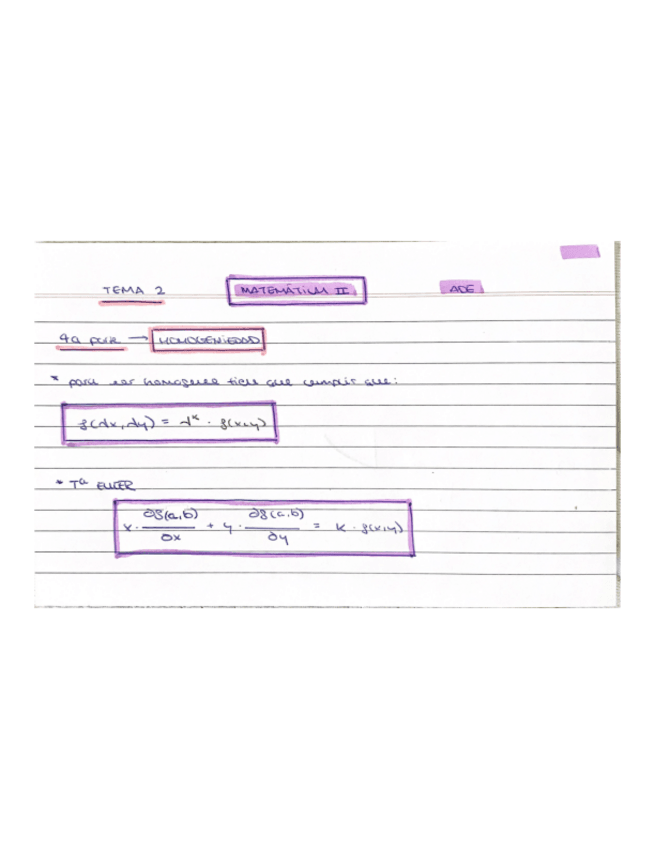 TEMA 2 MATEMÁTICAS II ADE
4a parte → HOMOGENIEDAD
* para ser homogenea tiene que cumplir que:
f(λx, λy) = λᵏ · f(x,y)
* Tª EULER
x · ∂f(a,b)/∂x + y · ∂f(a,b)/∂y = K · f(x,y)